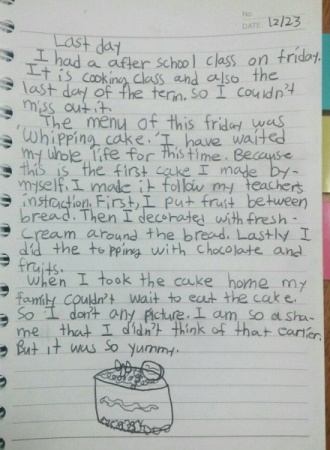 No.
DATE. 12/23
Last day
I had a after school class on friday.
It is cooking class and also the
last day of the term. So I couldn't
miss out it.
The menu of this friday was
'Whipping cake.' I have waited
my whole life for this time. Because
this is the first cake I made by-
myself. I made it follow my teachers
instruction. First, I put fruit between
bread. Then I decorated with fresh-
cream around the bread. Lastly I
did the topping with chocolate and
fruits.
When I took the cake home my
family couldn't wait to eat the cake.
So I don't any picture. I am so asha-
me that I didn't think of that earier.
But it was so yummy.